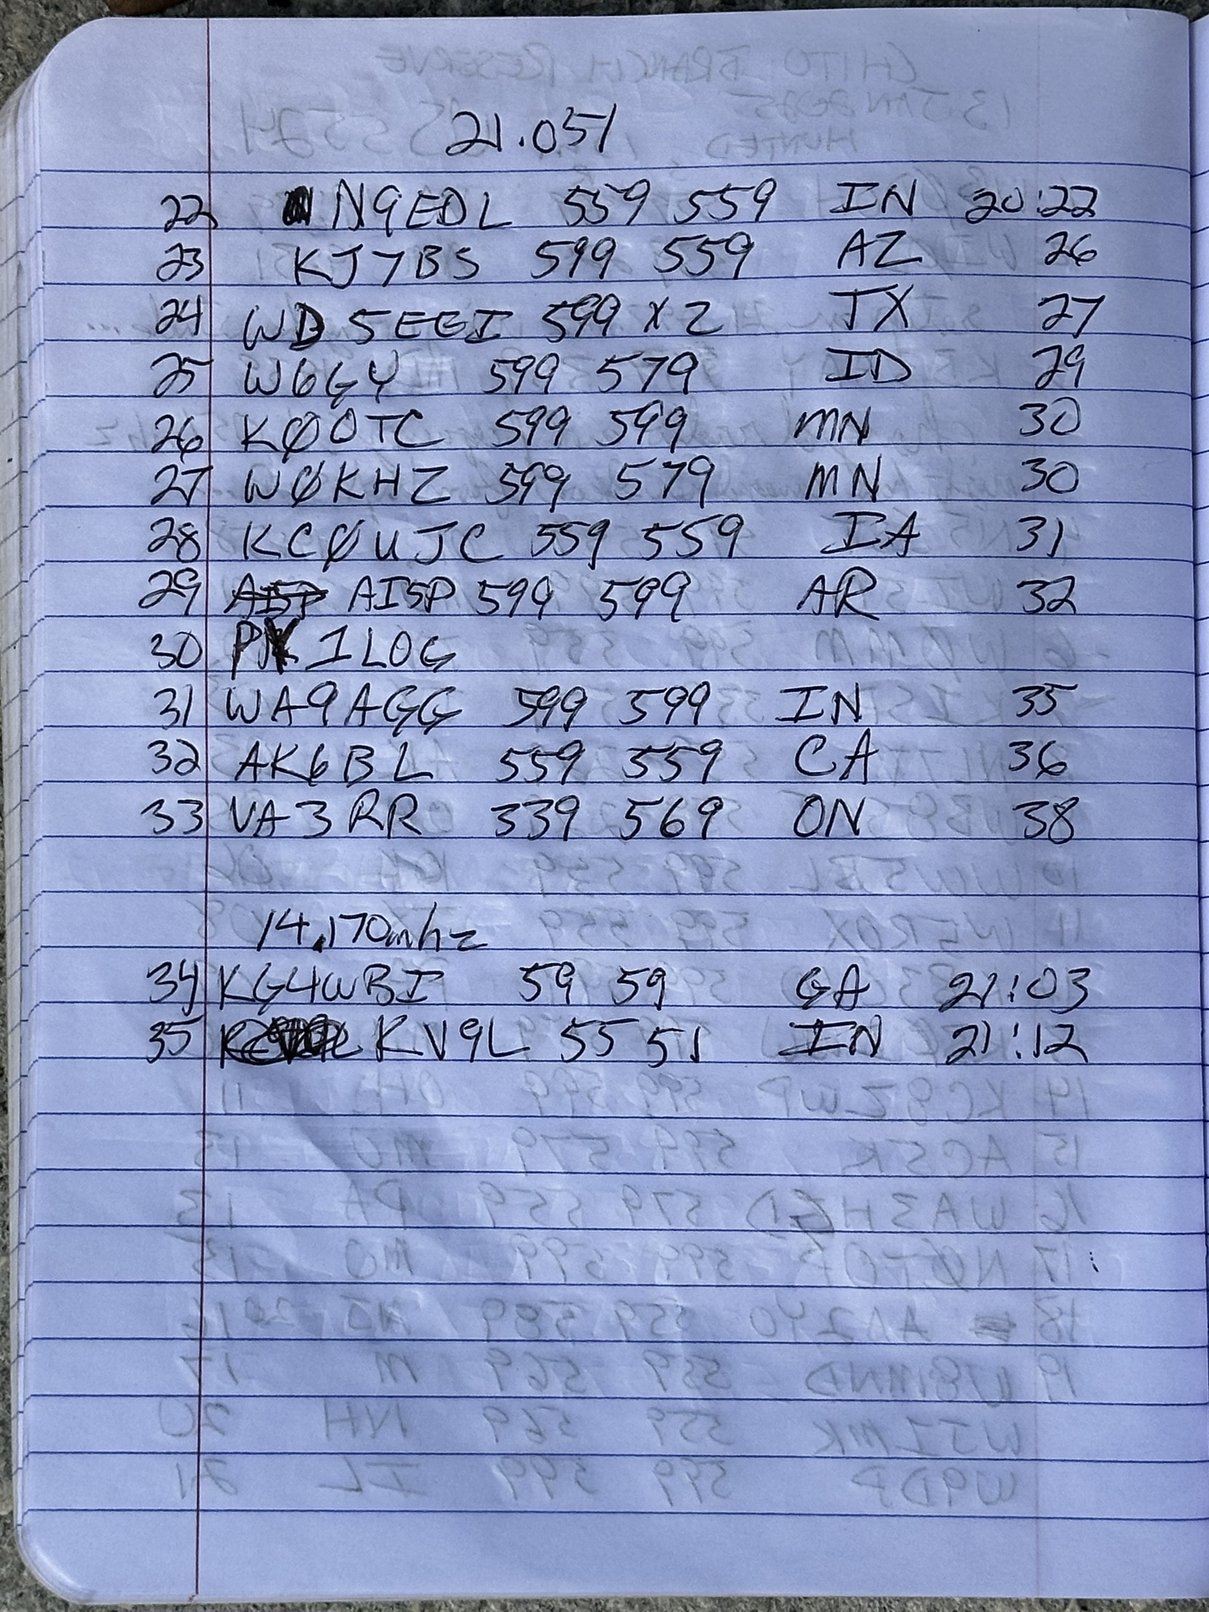 21.051
22 N9EDL 559 559 IN 20:22
23 KJ7BS 599 559 AZ 26
24 WD5EEI 599 X2 TX 27
25 W6GY 599 579 ID 29
26 KØOTC 599 599 MN 30
27 WØKHZ 599 579 MN 30
28 KCØUJC 559 559 IA 31
29 AI5P AI5P 599 599 AR 32
30 PK1LOG
31 WA9AGG 599 599 IN 35
32 AK6BL 559 559 CA 36
33 VA3RR 339 569 ON 38
14.170mhz
34 KG4WBI 59 59 GA 21:03
35 KV9L 55 51 IN 21:12